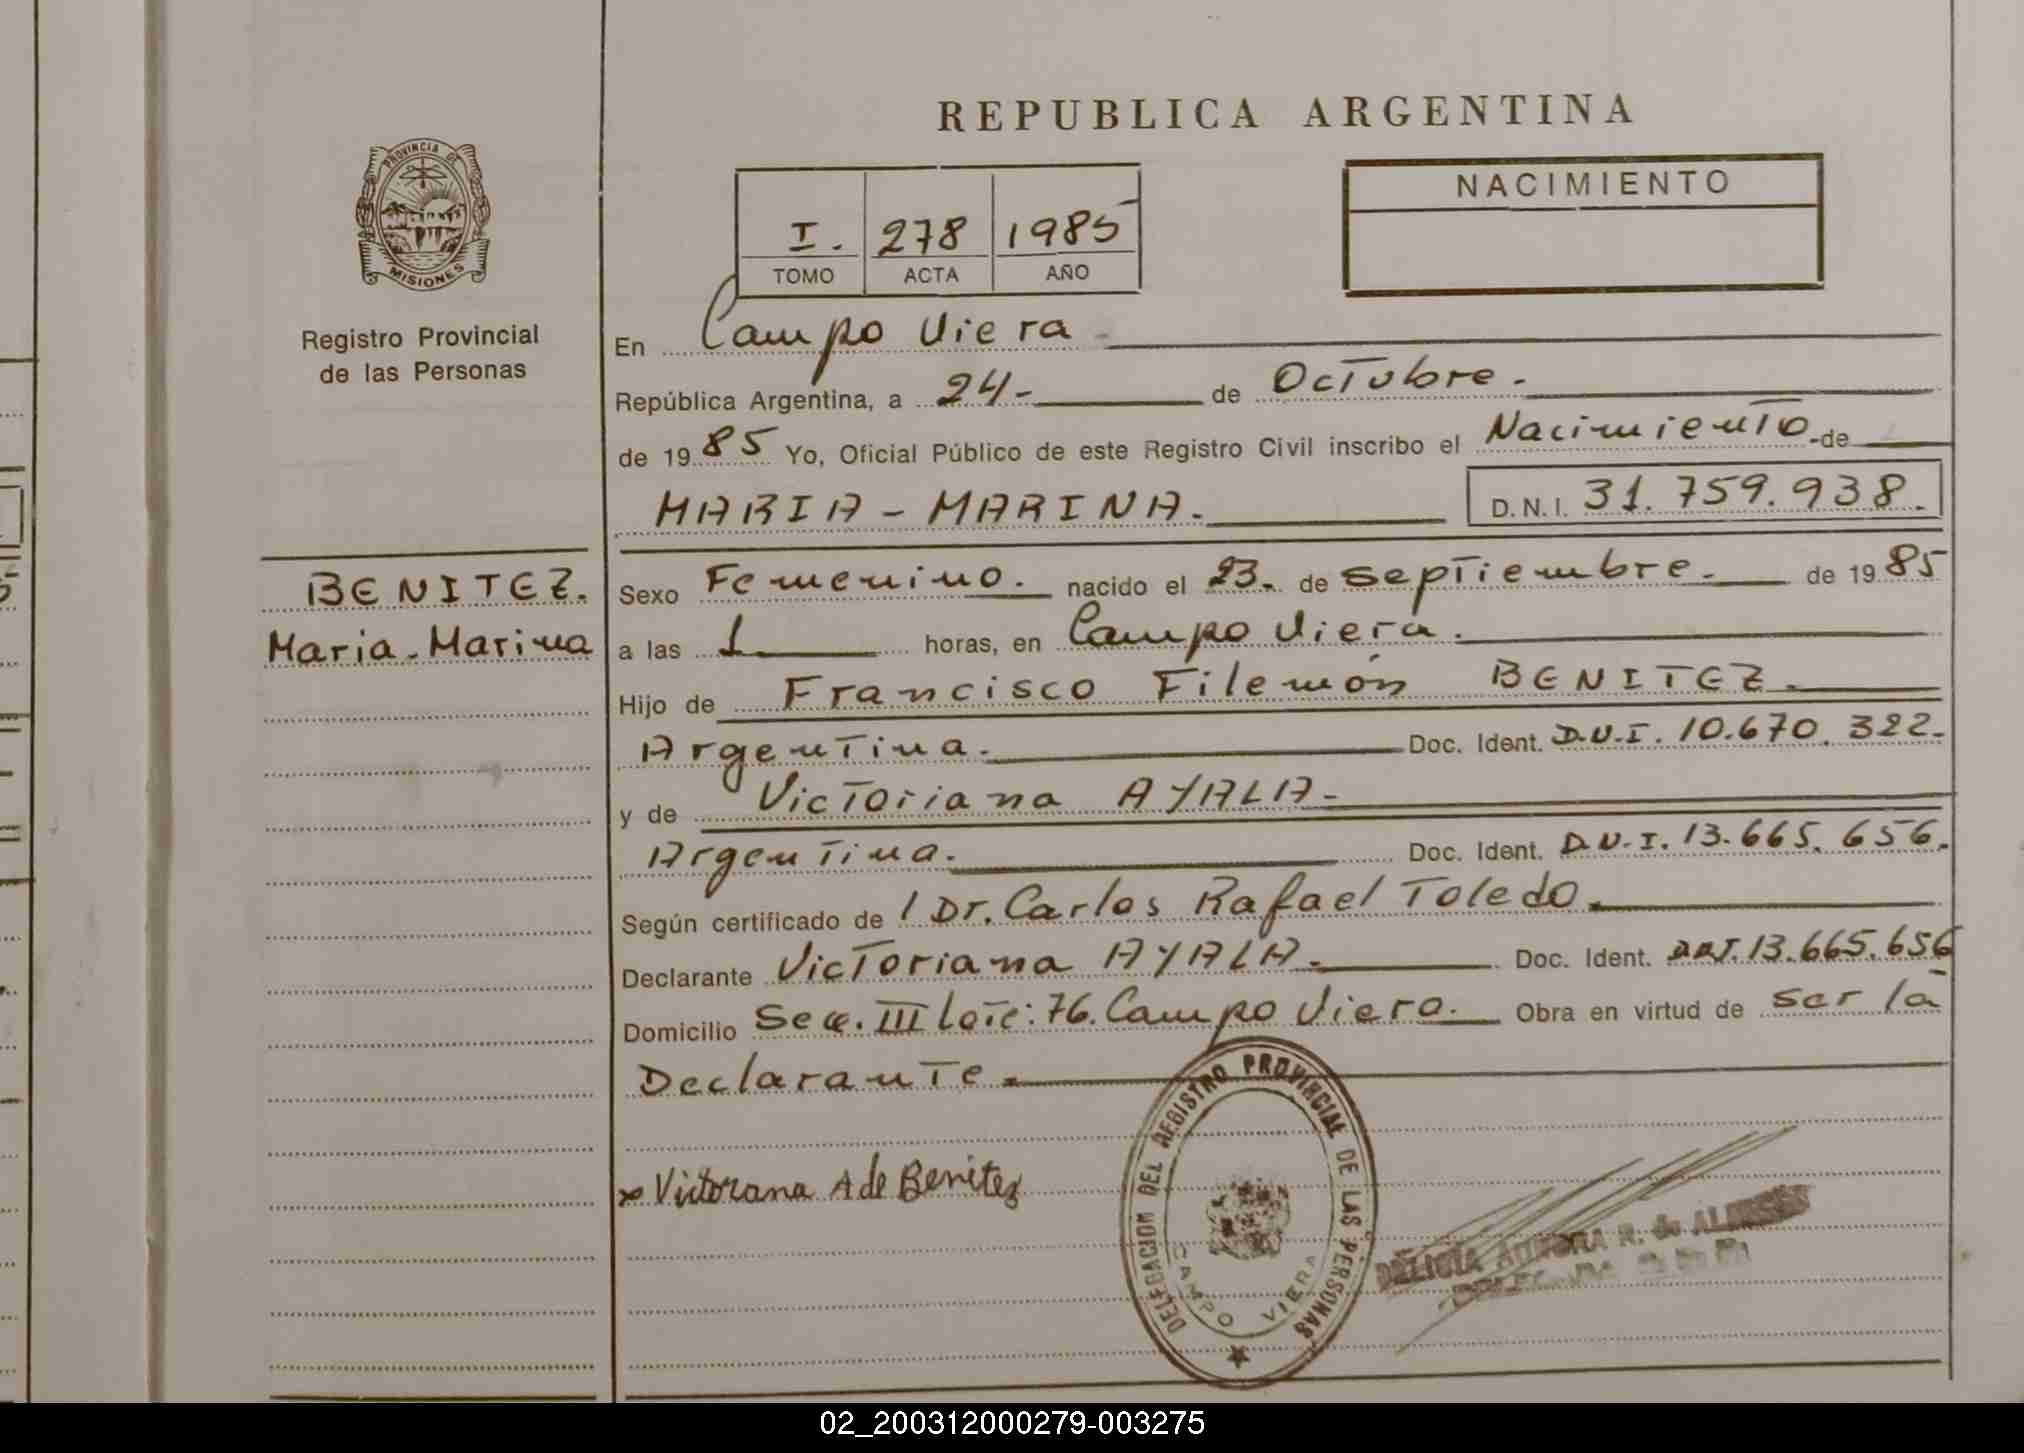 REPUBLICA ARGENTINA
PROVINCIA DE
MISIONES
Registro Provincial
de las Personas
I. 278 1985
TOMO ACTA AÑO
NACIMIENTO
En Campo Viera
República Argentina, a 24- de Octubre.
de 1985 Yo, Oficial Público de este Registro Civil inscribo el Nacimiento-de
MARIA - MARINA. D.N.I. 31.759.938.
BENITEZ.
Maria-Marina
Sexo Femenino. nacido el 23. de septiembre. de 1985
a las 1 horas, en Campo Viera.
Hijo de Francisco Filemón BENITEZ.
Argentina. Doc. Ident. D.N.I. 10.670.322.
y de Victoriana AYALA-
Argentina. Doc. Ident. D.N.I. 13.665.656.
Según certificado de / Dr. Carlos Rafael Toledo.
Declarante Victoriana AYALA. Doc. Ident. D.N.I. 13.665.656
Domicilio Secc. III Lote: 76. Campo Viera. Obra en virtud de ser la
Declarante.
Victorana A de Benitez
DELEGACION DEL REGISTRO PROVINCIAL DE LAS PERSONAS
CAMPO VIERA
R. de
02_200312000279-003275